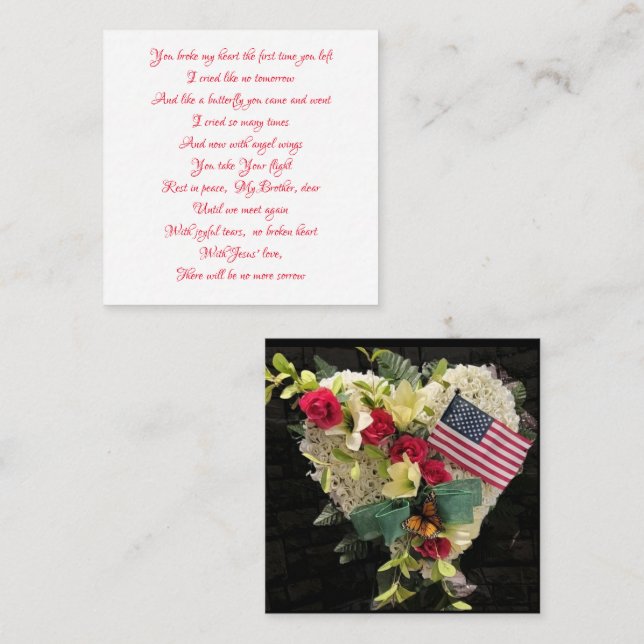 You broke my heart the first time you left
I cried like no tomorrow
And like a butterfly you came and went
I cried so many times
And now with angel wings
You take Your flight
Rest in peace, My Brother, dear
Until we meet again
With joyful tears, no broken heart
With Jesus' love,
There will be no more sorrow